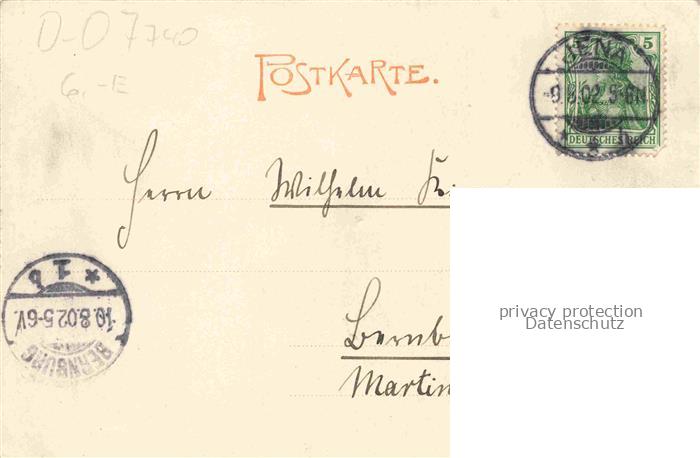 D-07740
6.-E
POSTKARTE.
5
DEUTSCHES REICH
JENA
-9.8.02. 5-6N
Herrn Wilhelm
privacy protection
Datenschutz
Martin
BERNBURG
10.8.02.5-6V.
* 1 b